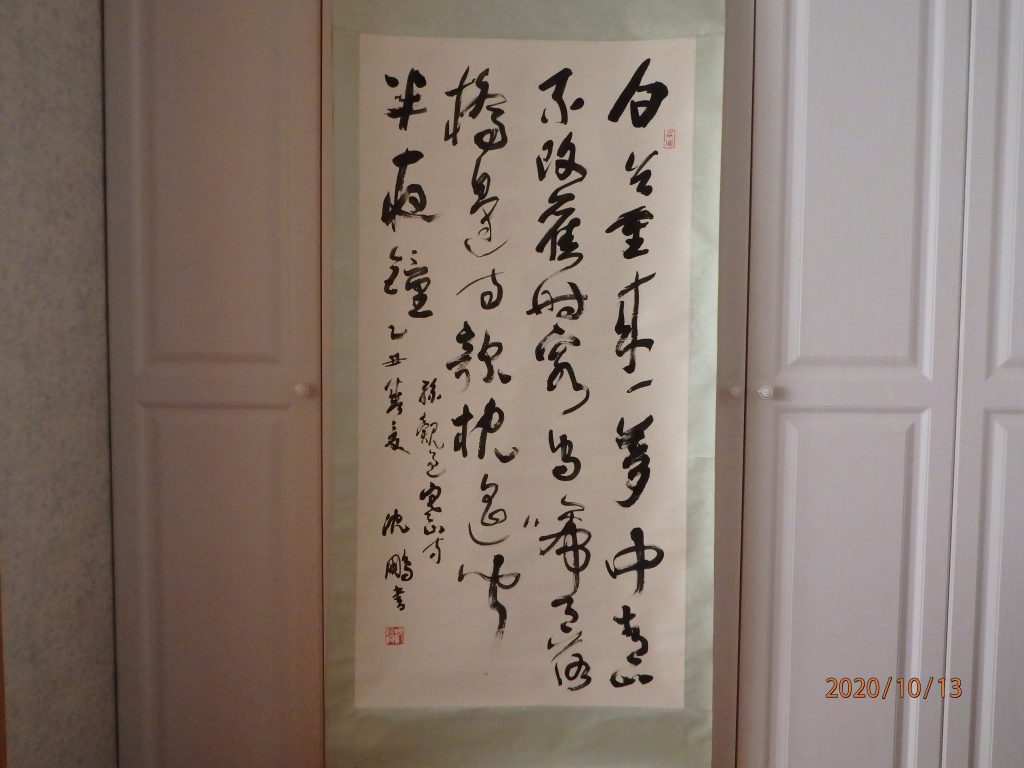 白首重来一夢中青山
不改舊时容烏啼月落
橋邊寺欹枕遥闻
半夜鐘
孫覿過寒山寺
乙丑夏 沈鵬書
2020/10/13